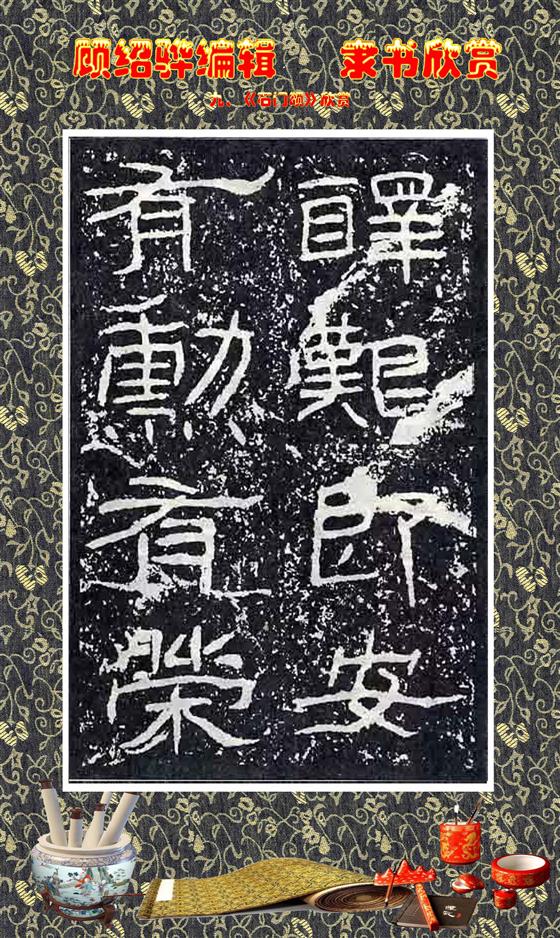 顾绍骅编辑 隶书欣赏
九、《石门颂》欣赏
醳艱即安
有勳有榮